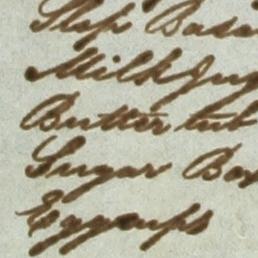 Slop Basi
Milk Jug
Butter tub
Sugar Box
Eggcups